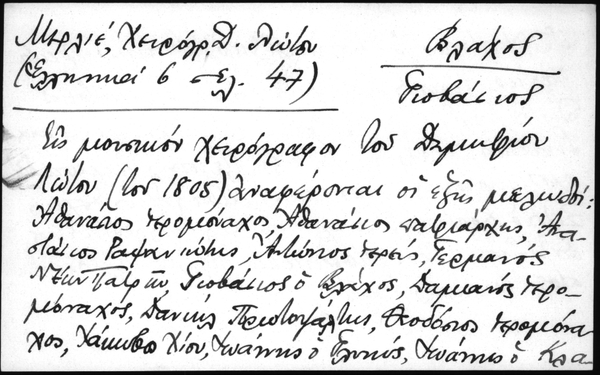 Μερλιέ, Χειρόγρ. Δ. Λώτου
(Ελληνικά 6 σελ. 47)
Βλάχος
Γιοβάσιος
Εἰς μουσικόν χειρόγραφον τοῦ Δημητρίου
Λώτου (τοῦ 1805) ἀναφέρονται οἱ ἑξῆς μελωδοί:
Ἀθανάσιος ἱερομόναχος, Ἀθανάσιος πατριάρχης, Ἀνα-
στάσιος Ραψανιώτης, Ἀντώνιος ἱερεύς, Γερμανός
Νέων Πατρῶν, Γιοβάσιος ὁ Βλάχος, Δαμιανός ἱερο-
μόναχος, Δανιήλ Πρωτοψάλτης, Θεοδόσιος ἱερομόνα-
χος, Ἰάκωβος Χίου, Ἰωάννης ὁ Γλυκύς, Ἰωάννης ὁ Κλα-